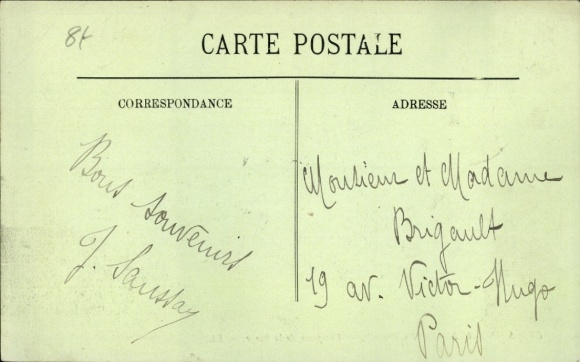 84
CARTE POSTALE
CORRESPONDANCE
Bons souvenirs
J. Saussay
ADRESSE
Monsieur et Madame
Brigault
19 av. Victor-Hugo
Paris